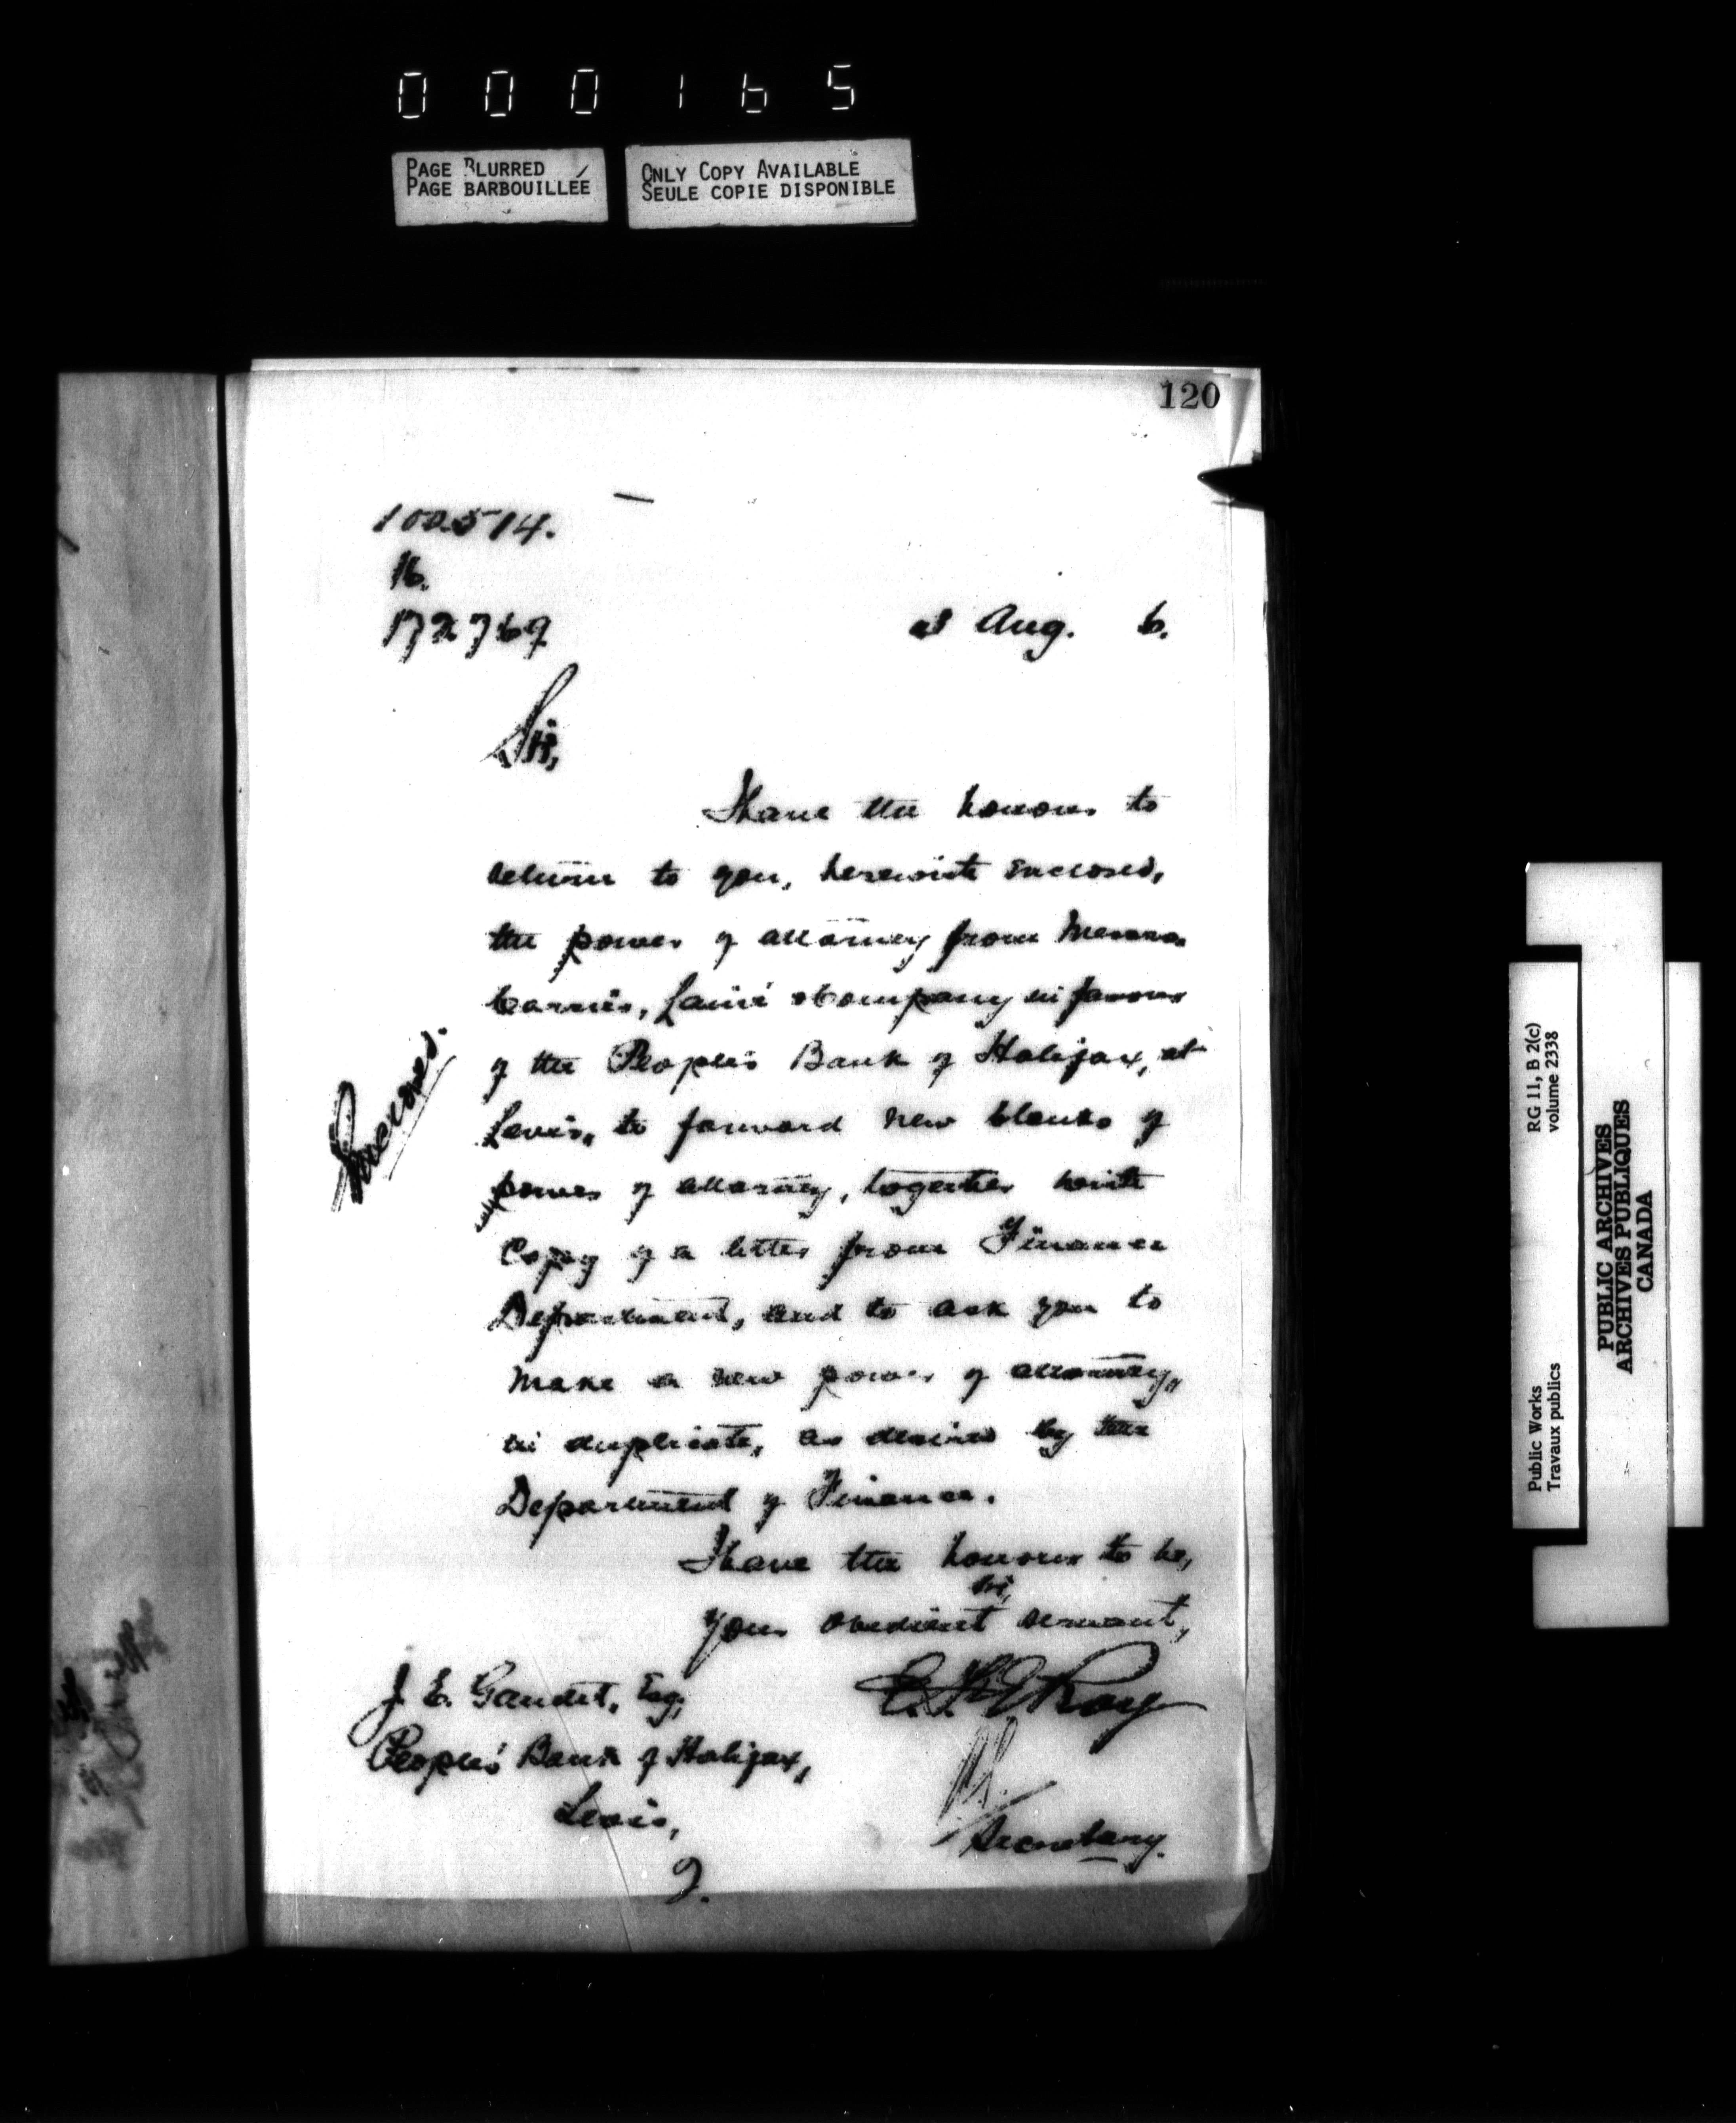 000165
PAGE BLURRED
PAGE BARBOUILLÉE
ONLY COPY AVAILABLE
SEULE COPIE DISPONIBLE
120
100514.
16.
172769
Aug. 6.
Sir,
I have the honour to
return to you, herewith enclosed,
the power of attorney from Messrs.
Carrier, Lainé & Company in favour
of the People's Bank of Halifax, at
Levis, to forward new blanks of
power of attorney, together with
Copy of a letter from Finance
Department, and to ask you to
make a new power of attorney,
in duplicate, as desired by the
Department of Finance.
I have the honour to be,
Sir,
Your obedient servant,
Enclosures.
J. E. Gaudet, Esq,
People's Bank of Halifax,
Levis,
Q.
Roy
Secretary.
RG 11, B 2(c)
volume 2338
Public Works
Travaux publics
PUBLIC ARCHIVES
ARCHIVES PUBLIQUES
CANADA